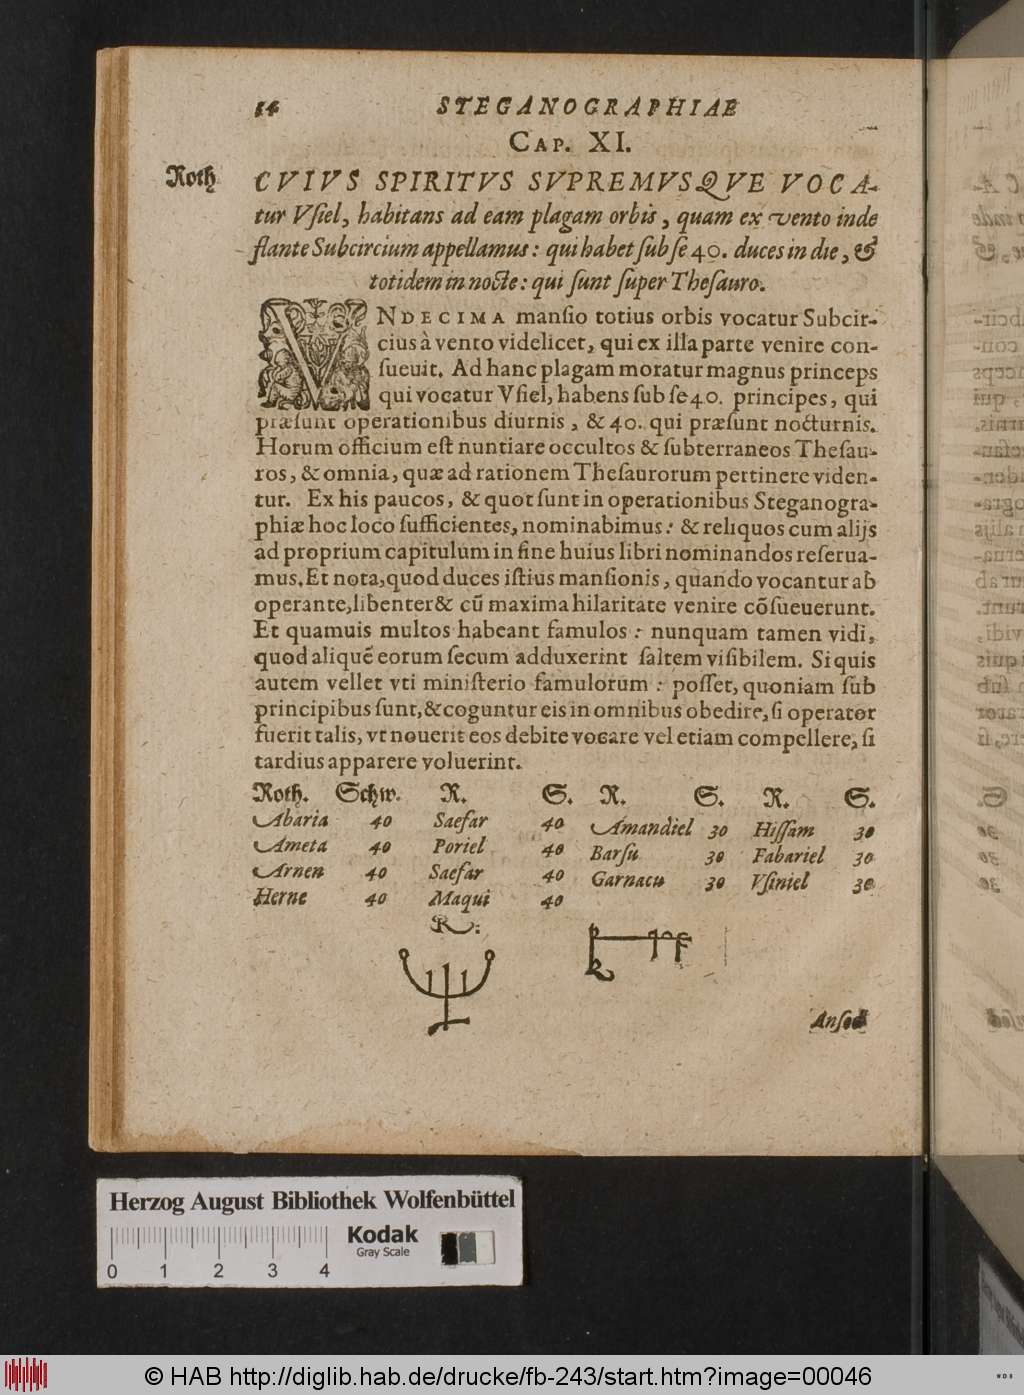 34 STEGANOGRAPHIAE
CAP. XI.
Roth CVIVS SPIRITVS SVPREMVSQVE VOCA-
tur Vſiel, habitans ad eam plagam orbis, quam ex vento inde
flante Subcircium appellamus: qui habet ſub ſe 40. duces in die, &
totidem in nocte: qui ſunt ſuper Theſauro.
VNDECIMA manſio totius orbis vocatur Subcir-
cius à vento videlicet, qui ex illa parte venire con-
ſueuit. Ad hanc plagam moratur magnus princeps
qui vocatur Vſiel, habens ſub ſe 40. principes, qui
præſunt operationibus diurnis, & 40. qui præſunt nocturnis.
Horum officium eſt nuntiare occultos & ſubterraneos Theſau-
ros, & omnia, quæ ad rationem Theſaurorum pertinere viden-
tur. Ex his paucos, & quot ſunt in operationibus Steganogra-
phiæ hoc loco ſufficientes, nominabimus: & reliquos cum alijs
ad proprium capitulum in fine huius libri nominandos reſerua-
mus. Et nota, quod duces iſtius manſionis, quando vocantur ab
operante, libenter & cũ maxima hilaritate venire cõſueuerunt.
Et quamuis multos habeant famulos: nunquam tamen vidi,
quod aliquẽ eorum ſecum adduxerint ſaltem viſibilem. Si quis
autem vellet vti miniſterio famulorum: poſſet, quoniam ſub
principibus ſunt, & coguntur eis in omnibus obedire, ſi operator
fuerit talis, vt nouerit eos debite vocare vel etiam compellere, ſi
tardius apparere voluerint.
Roth. Schw. R. S. R. S. R. S.
Abaria 40 Saefar 40 Amandiel 30 Hiſſam 30
Ameta 40 Poriel 40 Barſu 30 Fabariel 30
Arnen 40 Saefar 40 Garnacu 30 Vſiniel 30
Herne 40 Maqui 40
R:
Herzog August Bibliothek Wolfenbüttel
Kodak
Gray Scale
0 1 2 3 4
© HAB http://diglib.hab.de/drucke/fb-243/start.htm?image=00046